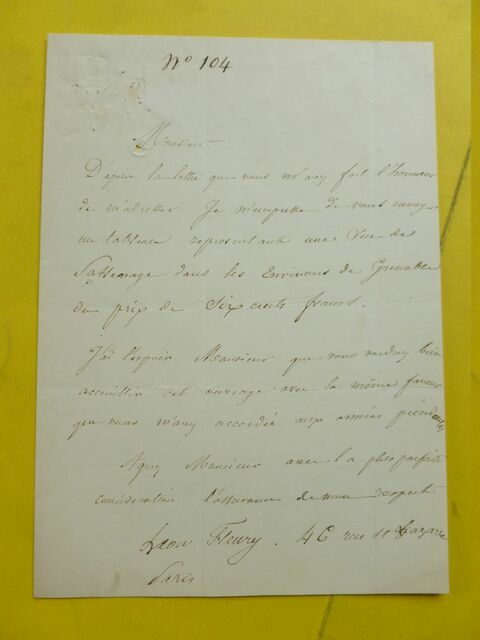 N° 104
Monsieur
D'après la lettre que vous m'avez fait l'honneur
de m'adresser Je m'empresse de vous envoyer
un tableau représentant une Vue de
Sassenage dans les Environs de Grenoble
du prix de Six cents francs.
J'ai l'espoir Monsieur que vous voudrez bien
accueillir cet ouvrage avec la même faveur
que vous m'avez accordée aux années précédentes
Agréez Monsieur avec la plus parfaite
considération l'assurance de mon respect
Leon Fleury . 46 rue St Lazare
Paris